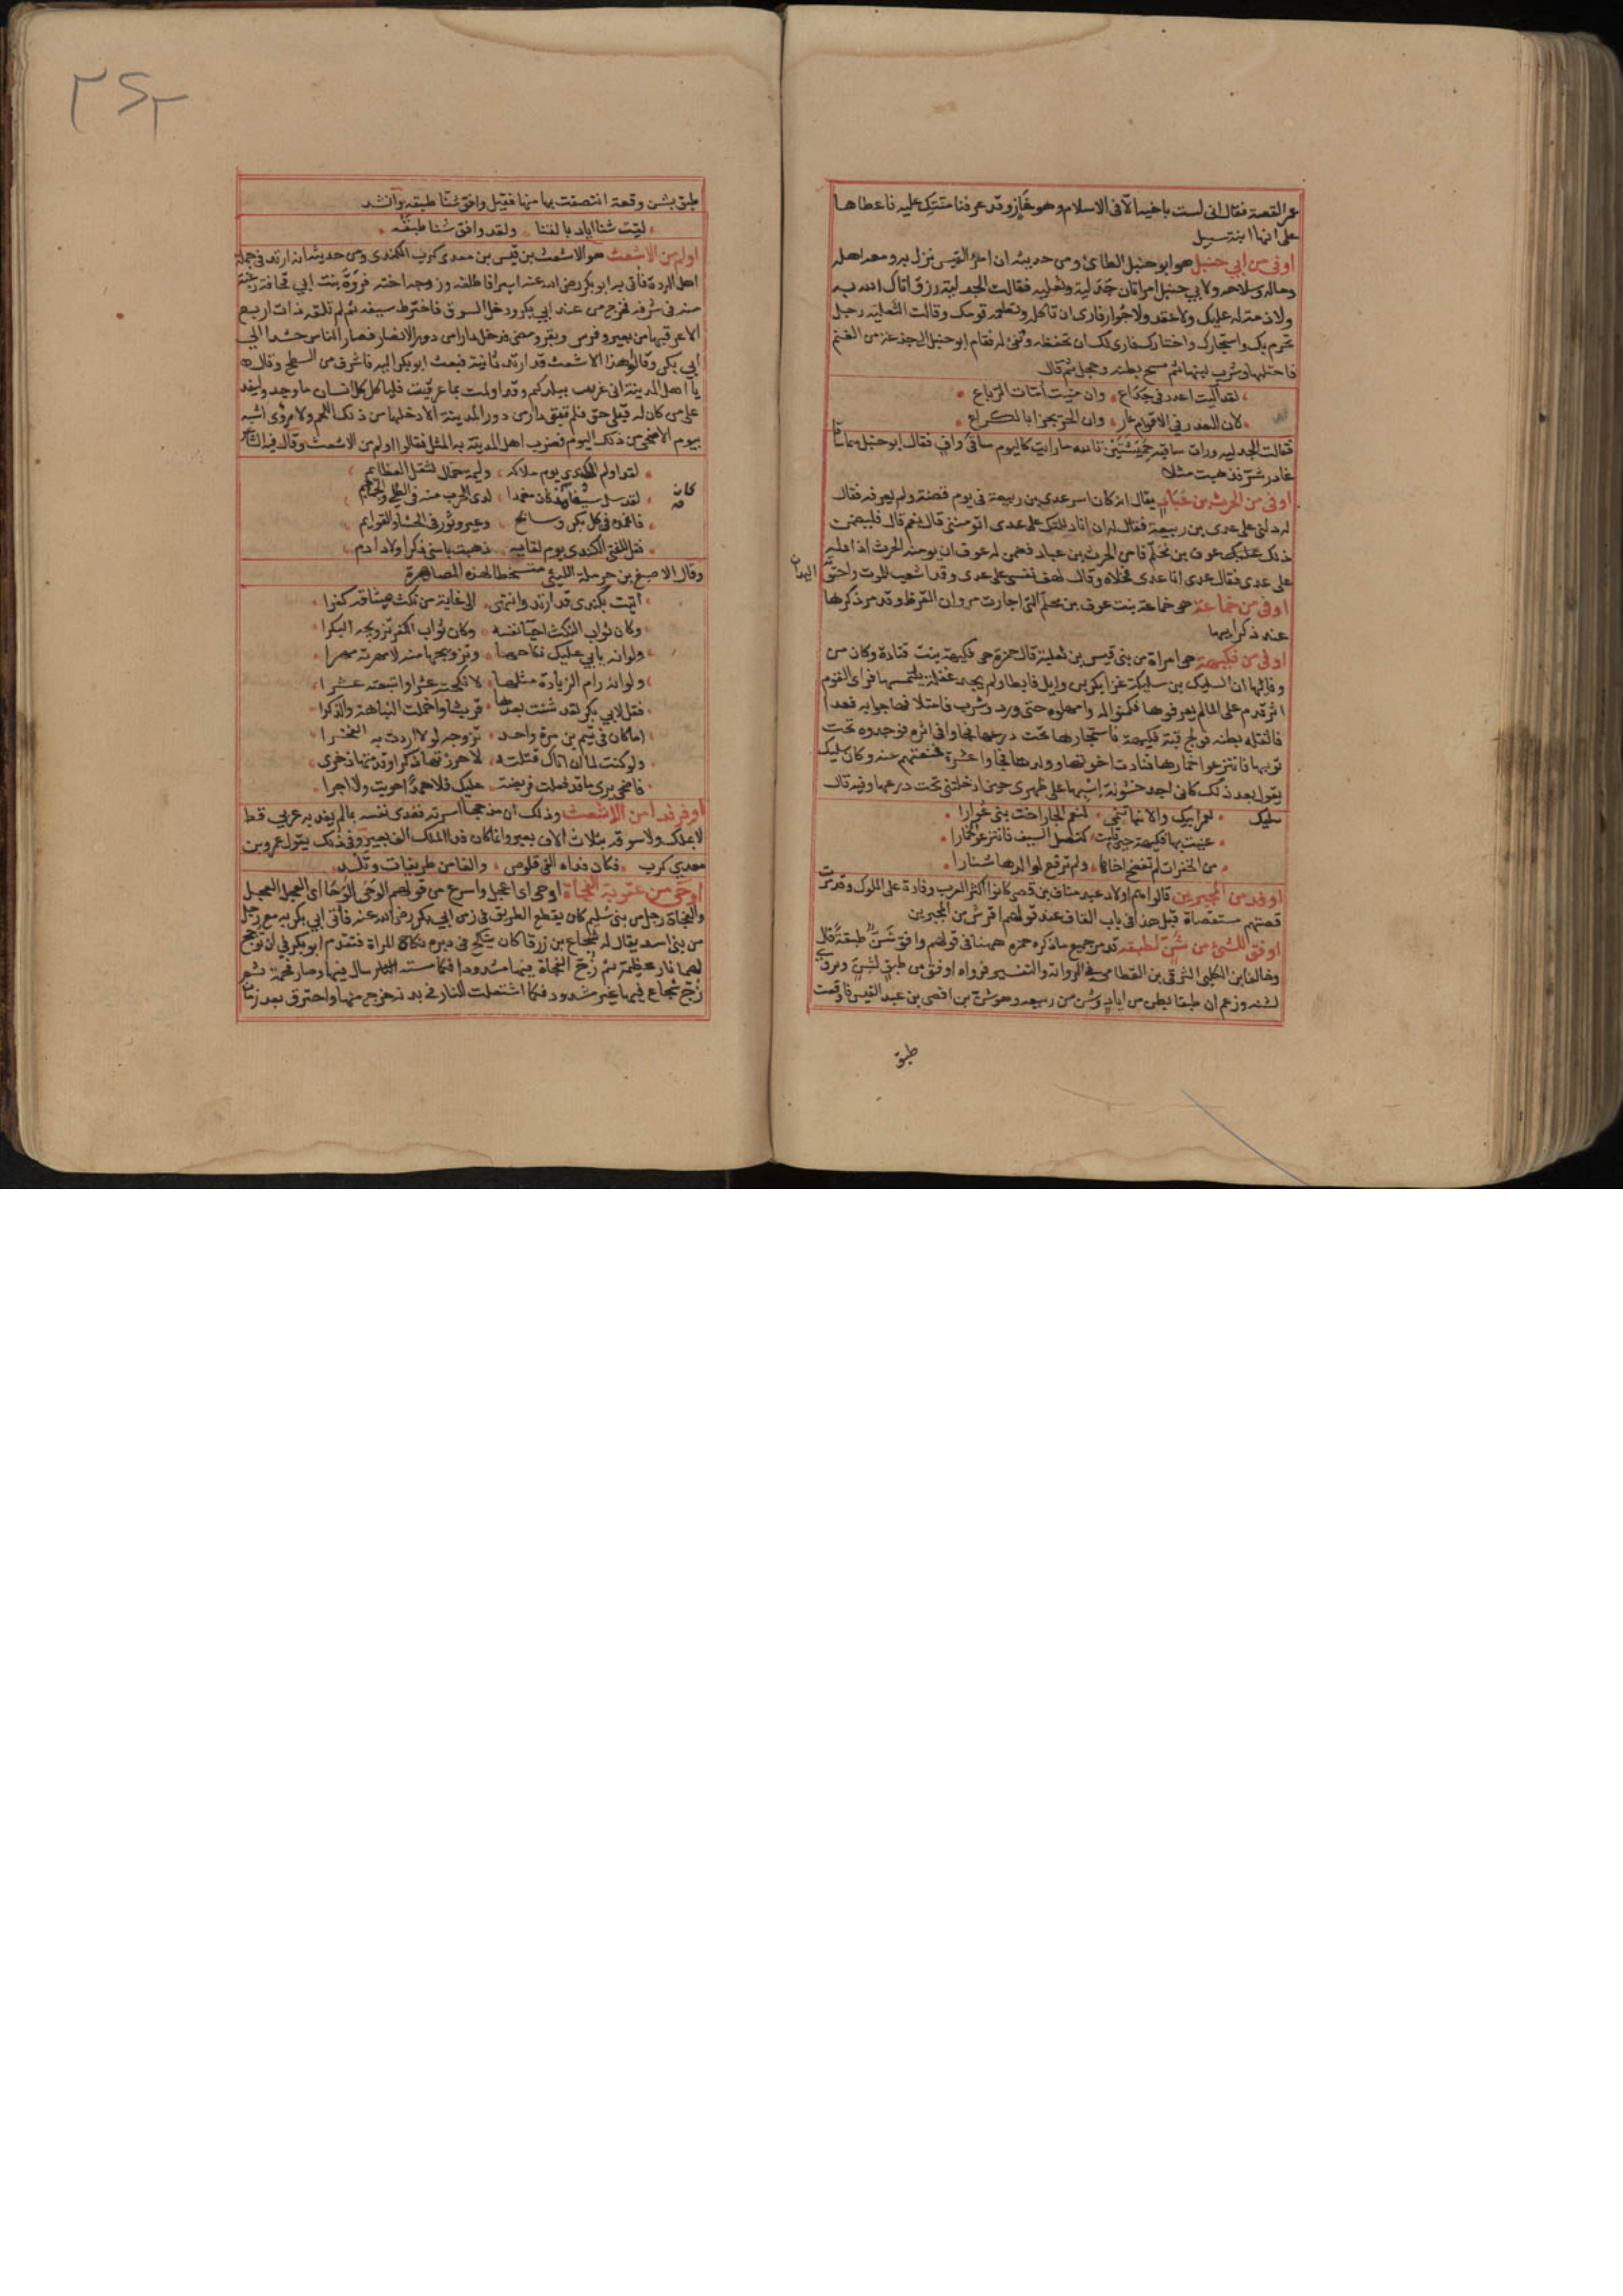 عمر القصة فقال اني لست باخيها الا في الاسلام وهو غاز وقد عرفنا منتك عليه فاعطاها
على انها ابنة سبيل
اوفى من ابي حنبل هو ابو حنبل الطائي ومن حديثه ان امرا القيس نزل به ومعه اهله
وماله وسلاحه ولابي حنبل امراتان جدلية وثعلبية فقالت الجدلية رزق اتاك الله به
ولا ذمة له عليك ولا عقد ولا جوار فارى ان تاكله وتطعمه قومك وقالت الثعلبية رجل
تحرم بك واستجارك واختارك فارى لك ان تحفظه وتفي له فقام ابو حنبل الى جذعة من الغنم
فاحتلبها وشرب لبنها ثم مسح بطنه وحجل ثم قال
لقد آليت اغدر في جداع وان منيت امات الرباع
لان الغدر في الاقوام عار وان الحر يجزا بالكراع
فقالت الجدلية ورات ساقيه حمشتين تالله ما رايت كاليوم ساقي واف فقال ابو حنبل هما ساقا
غادر شر فذهبت مثلا
اوفى من الحرث بن عباد يقال انه كان اسر عدي بن ربيعة في يوم قضة ولم يعرفه فقال
له دلني على عدي بن ربيعة فقال له ان انا دللتك على عدي اتومنني قال نعم قال فليضمن
ذلك عليك عوف بن محلم فامن الحرث بن عباد فضمن له عوف ان يومنه الحرث اذا دله
على عدي فقال عدي انا عدي فخلاه وقال لهف نفسي على عدي وقد اشعب للموت واحتوته
اليدان
اوفى من خماعة هي خماعة بنت عوف بن محلم التي اجارت مروان القرظ وقد مر ذكرها
عند ذكر ابيها
اوفى من فكيهة هي امراة من بني قيس بن ثعلبة قال حمزة هي فكيهة بنت قتادة وكان من
وفائها ان السليك بن سليكة غزا بكر بن وايل فابطا ولم يجد غفلة يلتمسها فراى القوم
اثر قدم على الماء لم يعرفوها فكمنوا له وامهلوه حتى ورد وشرب فامتلا فهاجوا به فعدا
فاثقله بطنه فولج قبة فكيهة فاستجارها فادخلته تحت درعها فجاوا في اثره فوجدوه تحت
ثوبها فانتزعوا خمارها فنادت اخوتها وولدها فجاوا عشرة فمنعتهم عنه وكان سليك
يقول بعد ذلك كاني اجد خشونة اسبها على ظهري حين ادخلتني تحت درعها وفيه قال
سليك لعمر ابيك والانباء تنمي لنعم الجار اخت بني عوارا
عنيت بها فكيهة حين قامت كنصل السيف فانتزعوا الخمارا
من الخفرات لم تفضح اخاها ولم ترفع لوالدها شنارا
اوفد من المجيرين قالوا هم اولاد عبد مناف بن قصي كانوا اكثر العرب وفادة على الملوك وقد مرت
قصتهم مستقصاة قبل هذا في باب القاف عند قولهم اقرش من المجبرين
اوفق للشي من شن لطبقه قد مر جميع ما ذكره حمزه ههنا في قولهم وافق شن طبقة قال
وخالف ابن الكلبي الشرقي بن القطامي في الرواية والتفسير فرواه اوفق من طبق لشن
لشنه وزعم ان طبقا بطن من اياد وشن من ربيعه وهو شن بن افصى بن عبد القيس فاوقعت
طبق
طبق بشن وقعة انتصفت بها منها فقيل وافق شنا طبقه وانشد
لقيت شنا اياد بالقنا ولقد وافق شنا طبقه
اولم من الاشعث هو الاشعث بن قيس بن معدي كرب الكندي ومن حديثه انه ارتد في جملة
اهل الردة فاتي به ابو بكر رضي الله عنه اسيرا فاطلقه وزوجه اخته فروة بنت ابي قحافة رغبة
منه في شرفه فخرج من عند ابي بكر ودخل السوق فاخترط سيفه ثم لم تلقه ذات اربع
الا عرقبها من بعير وفرس وبقر ومضى فدخل دارا من دور الانصار فصار الناس حشدا الى
ابي بكر وقالوا هذا الاشعث قد ارتد ثانية فبعث ابو بكر اليه فاشرف من السطح وقال
يا اهل المدينة اني غريب ببلدكم وقد اولمت بما عرقبت فلياكل كل انسان ما وجد وليغد
علي من كان له قبلي حق فلم تبق دار من دور المدينة الا دخلها من ذلك اللحم ولا مرؤى اشبه
بيوم الاضحى من ذلك اليوم فضرب اهل المدينة به المثل فقالوا اولم من الاشعث وقال فيه الشاعر
لقد اولم الكندي يوم ملاكه وليمة حمال لثقل العظايم
كان
لقد سل سيفا كان مغمدا لدى الحرب منه في الطلى والجماجم
فاغمده في كل بكر وسابح وعير وثور في الحشا والقوايم
فقل للفتى الكندي يوم لقايه ذهبت باسنى ذكر اولاد ادم
وقال الاصبغ بن حرملة الليثي متسخطا لهذه المصاهرة
اتيت بكندي قد ارتد وانتهى الى غاية من نكث ميثاقه كفرا
وكان ثواب النكث احيا نفسه وكان ثواب الكفر تزويجه البكرا
ولو انه يابى عليك نكاحها وتزويجها منه لامهرته مهرا
ولو انه رام الزيادة مثلها لانكحته عشرا واتبعته عشرا
فقل لابي بكر لقد شنت بعدها قريشا واخملت النباهة والذكرا
اما كان في تيم بن مرة واحد تزوجه لولا اردت به الفخرا
ولو كنت لما ان اتاك قتلته لاحرزتها ذكرا وقدمتها ذخرى
فاضحى يرى ما قد فعلت فريضة عليك فلا حمدا حويت ولا اجرا
اوفر فداء من الاشعث وذلك ان مذحجا اسرته ففدى نفسه بما لم يفد به عربي قط
لا ملك ولا سوقة بثلاث الاف بعير وانما كان فداء الملك الف بعير وفي ذلك يقول عمرو بن
معدي كرب فكان فداه الفي قلوص والفا من طريفات وتلد
اوحى من عقوبة الفجاة اوحى اي اعجل واسرع من قولهم الوحى الوحا اي العجل العجل
والفجاة رجل من بني سليم كان يقطع الطريق في زمن ابي بكر رضي الله عنه فاتي ابي بكر به مع رجل
من بني اسد يقال له شجاع بن زرقا كان ينكح في دبره نكاح المراة فتقدم ابو بكر في ان توجج
لهما نار عظيمة ثم زج الفجاة فيها مشدودا فكلما مسته النار سال فيها وصار فحمة ثم
زج شجاع فيها غير مشدود فكلما اشتعلت النار في بدنه خرج منها واحترق بعد زمان